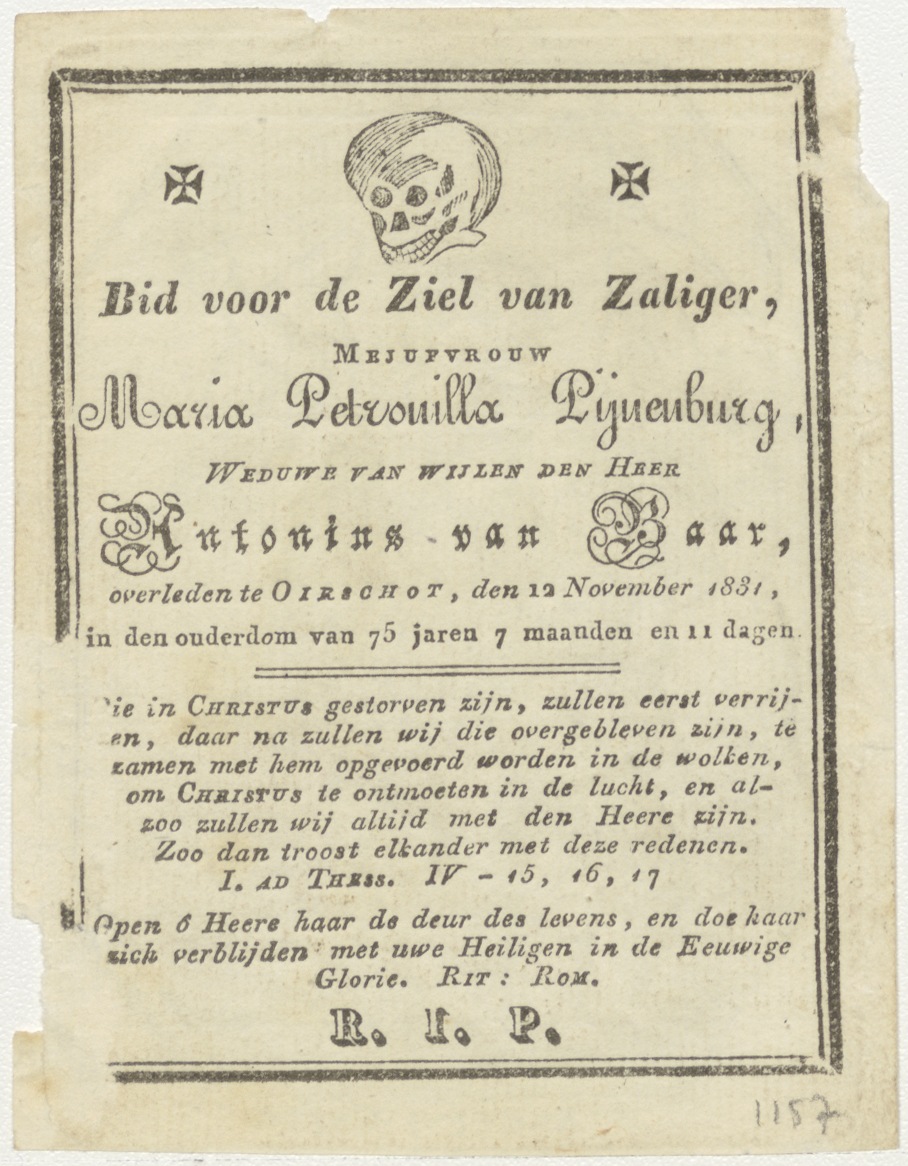 Bid voor de Ziel van Zaliger,
MEJUFVROUW
Maria Petronilla Pijnenburg,
WEDUWE VAN WIJLEN DEN HEER
Antonius van Baar,
overleden te OIRSCHOT, den 12 November 1831,
in den ouderdom van 75 jaren 7 maanden en 11 dagen.
ie in CHRISTUS gestorven zijn, zullen eerst verrij-
en, daar na zullen wij die overgebleven zijn, te
zamen met hem opgevoerd worden in de wolken,
om CHRISTUS te ontmoeten in de lucht, en al-
zoo zullen wij altijd met den Heere zijn.
Zoo dan troost elkander met deze redenen.
I. AD THESS. IV - 15, 16, 17
Open ó Heere haar de deur des levens, en doe haar
zich verblijden met uwe Heiligen in de Eeuwige
Glorie. RIT: ROM.
R. I. P.
1157